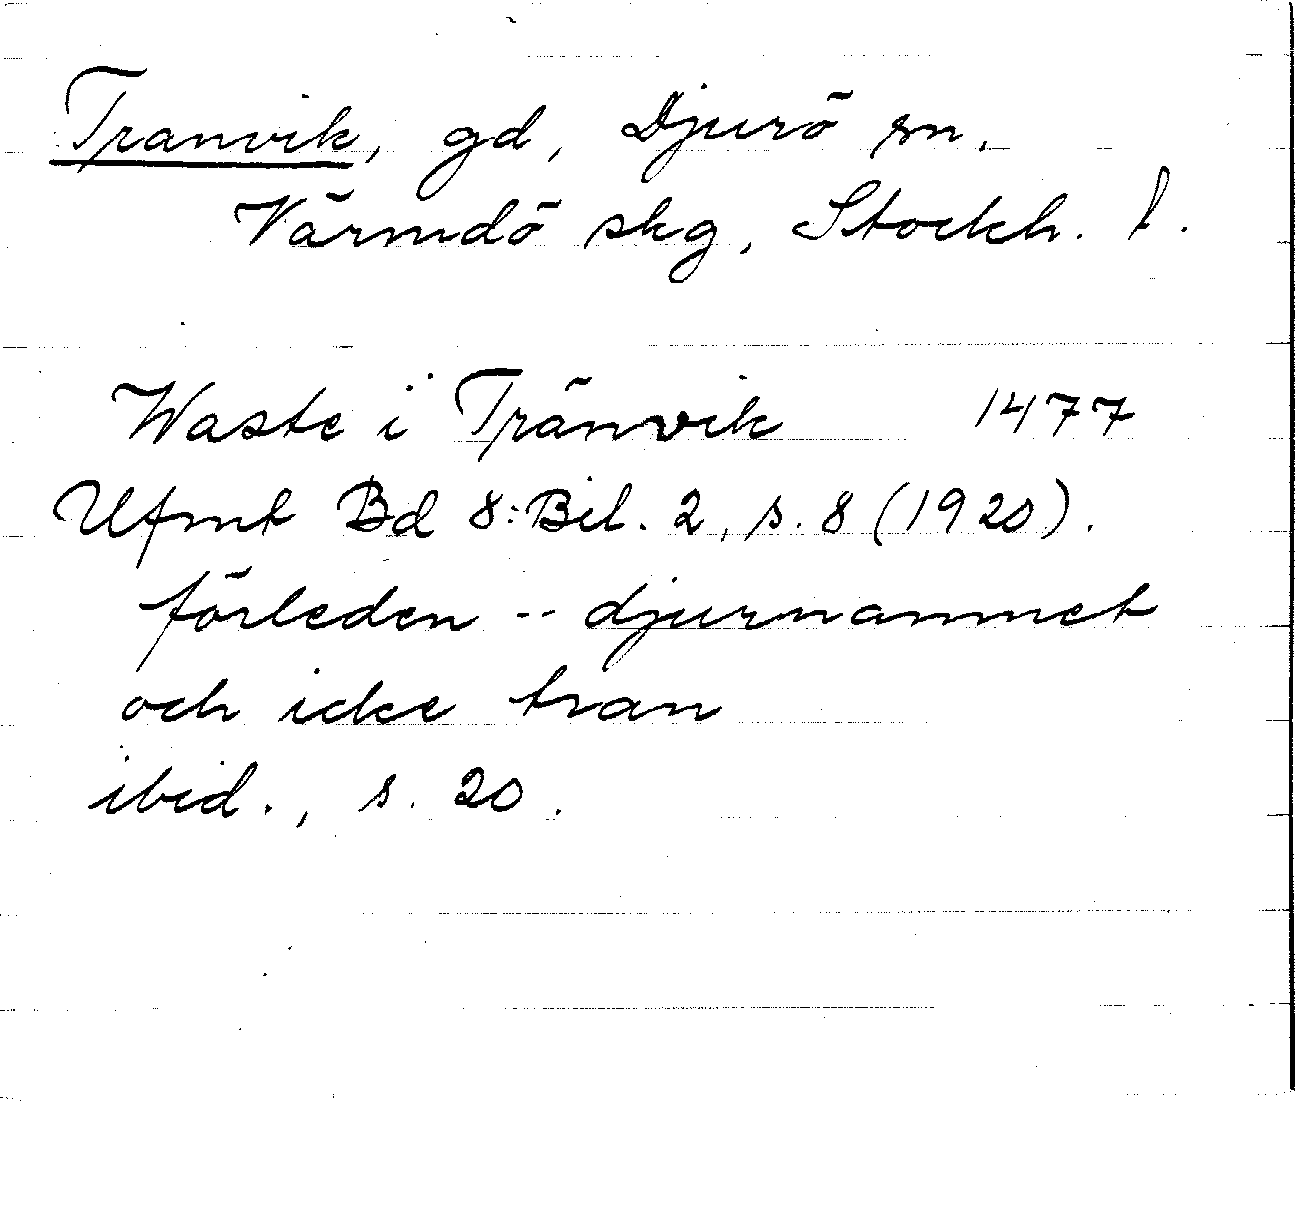 Tranvik, gd, Djurö sn.
Värmdö skg, Stockh. l.
Waste i Tränvik 1477
Ufmt Bd 8: Bil. 2, s. 8 (1920).
förleden -- djurnamnet
och icke tran
ibid., s. 20.